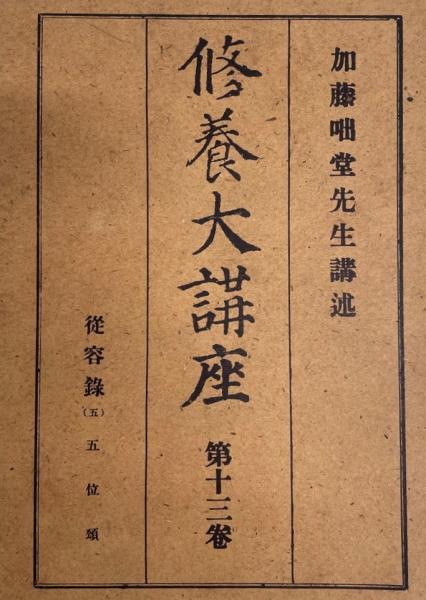 加藤咄堂先生講述
修養大講座 第十三卷
從容錄(五) 五位頌